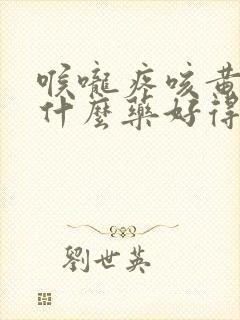 喉嚨疼咳黄
什麼藥好得
劉世英